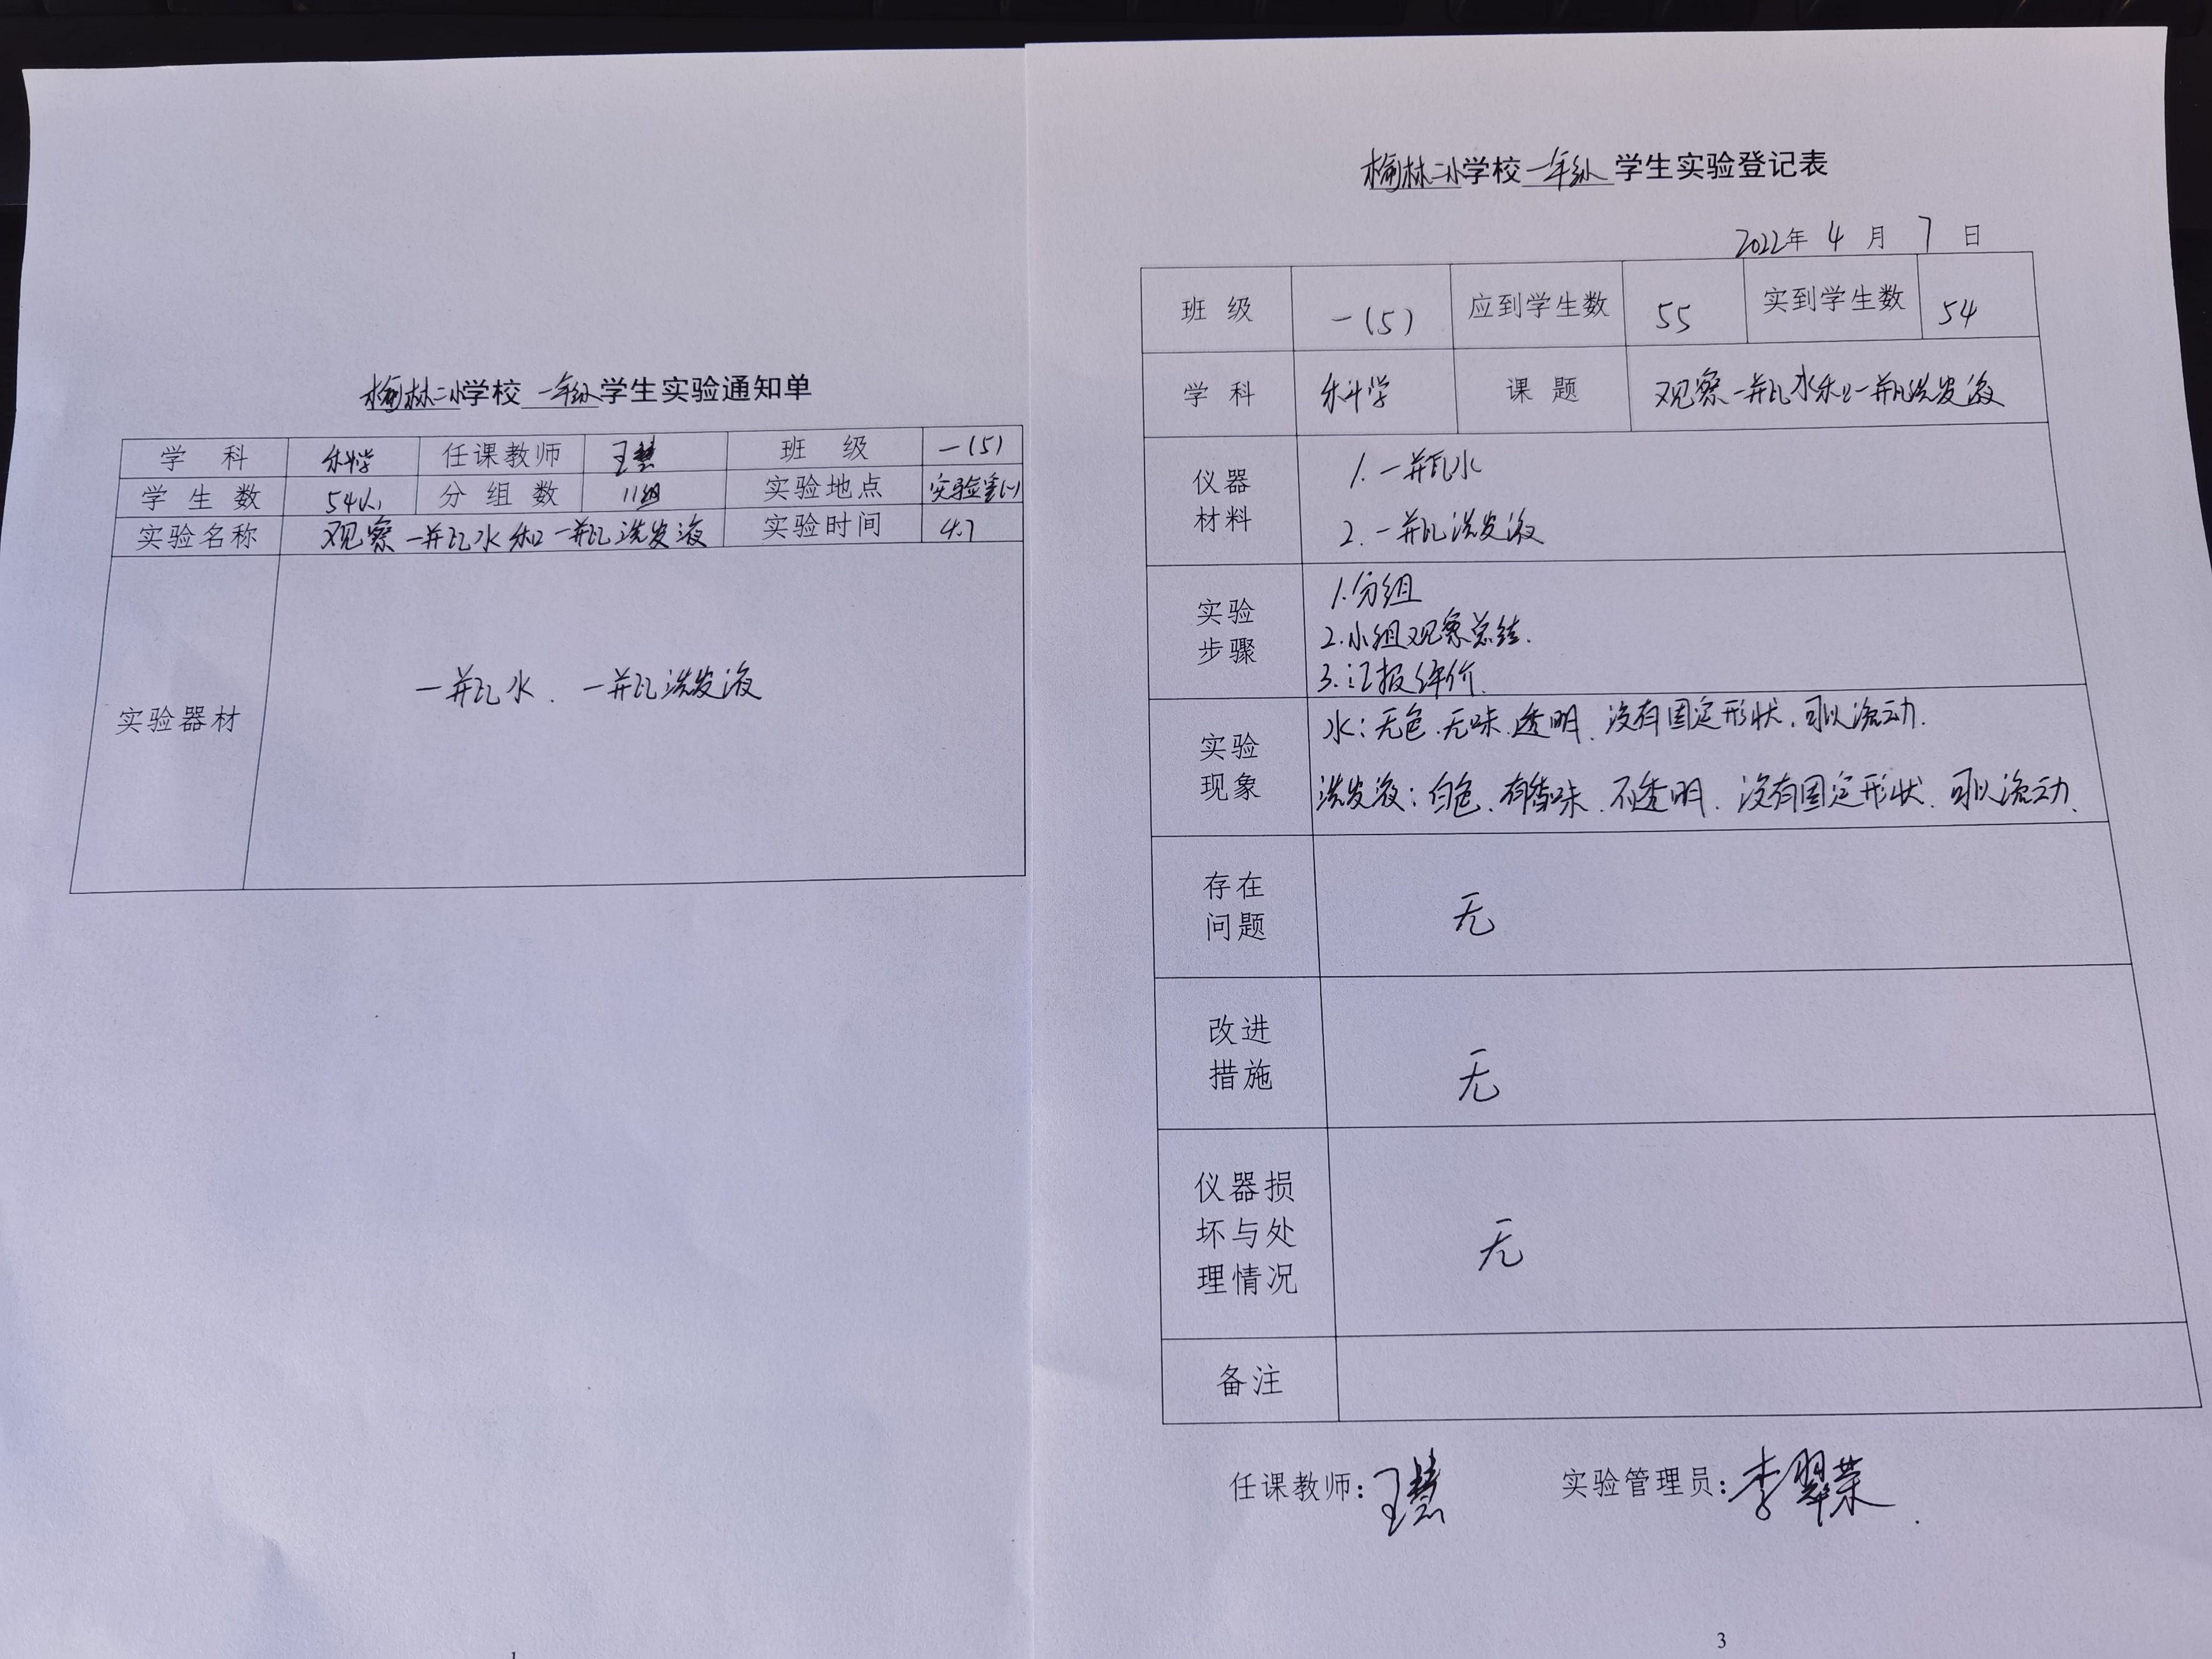 榆林二小学校一年级学生实验通知单
学科 科学 任课教师 王慧 班级 一(5)
学生数 54人 分组数 11组 实验地点 实验室(一)
实验名称 观察一瓶水和一瓶洗发液 实验时间 4.7
实验器材 一瓶水、一瓶洗发液
1
榆林二小学校一年级学生实验登记表
2022年4月7日
班级 一(5) 应到学生数 55 实到学生数 54
学科 科学 课题 观察一瓶水和一瓶洗发液
仪器材料
1.一瓶水
2.一瓶洗发液
实验步骤
1.分组
2.小组观察总结.
3.汇报评价.
实验现象
水:无色.无味.透明.没有固定形状.可以流动.
洗发液:白色.有香味.不透明.没有固定形状.可以流动.
存在问题 无
改进措施 无
仪器损坏与处理情况 无
备注
任课教师:王慧 实验管理员:李翠荣
3